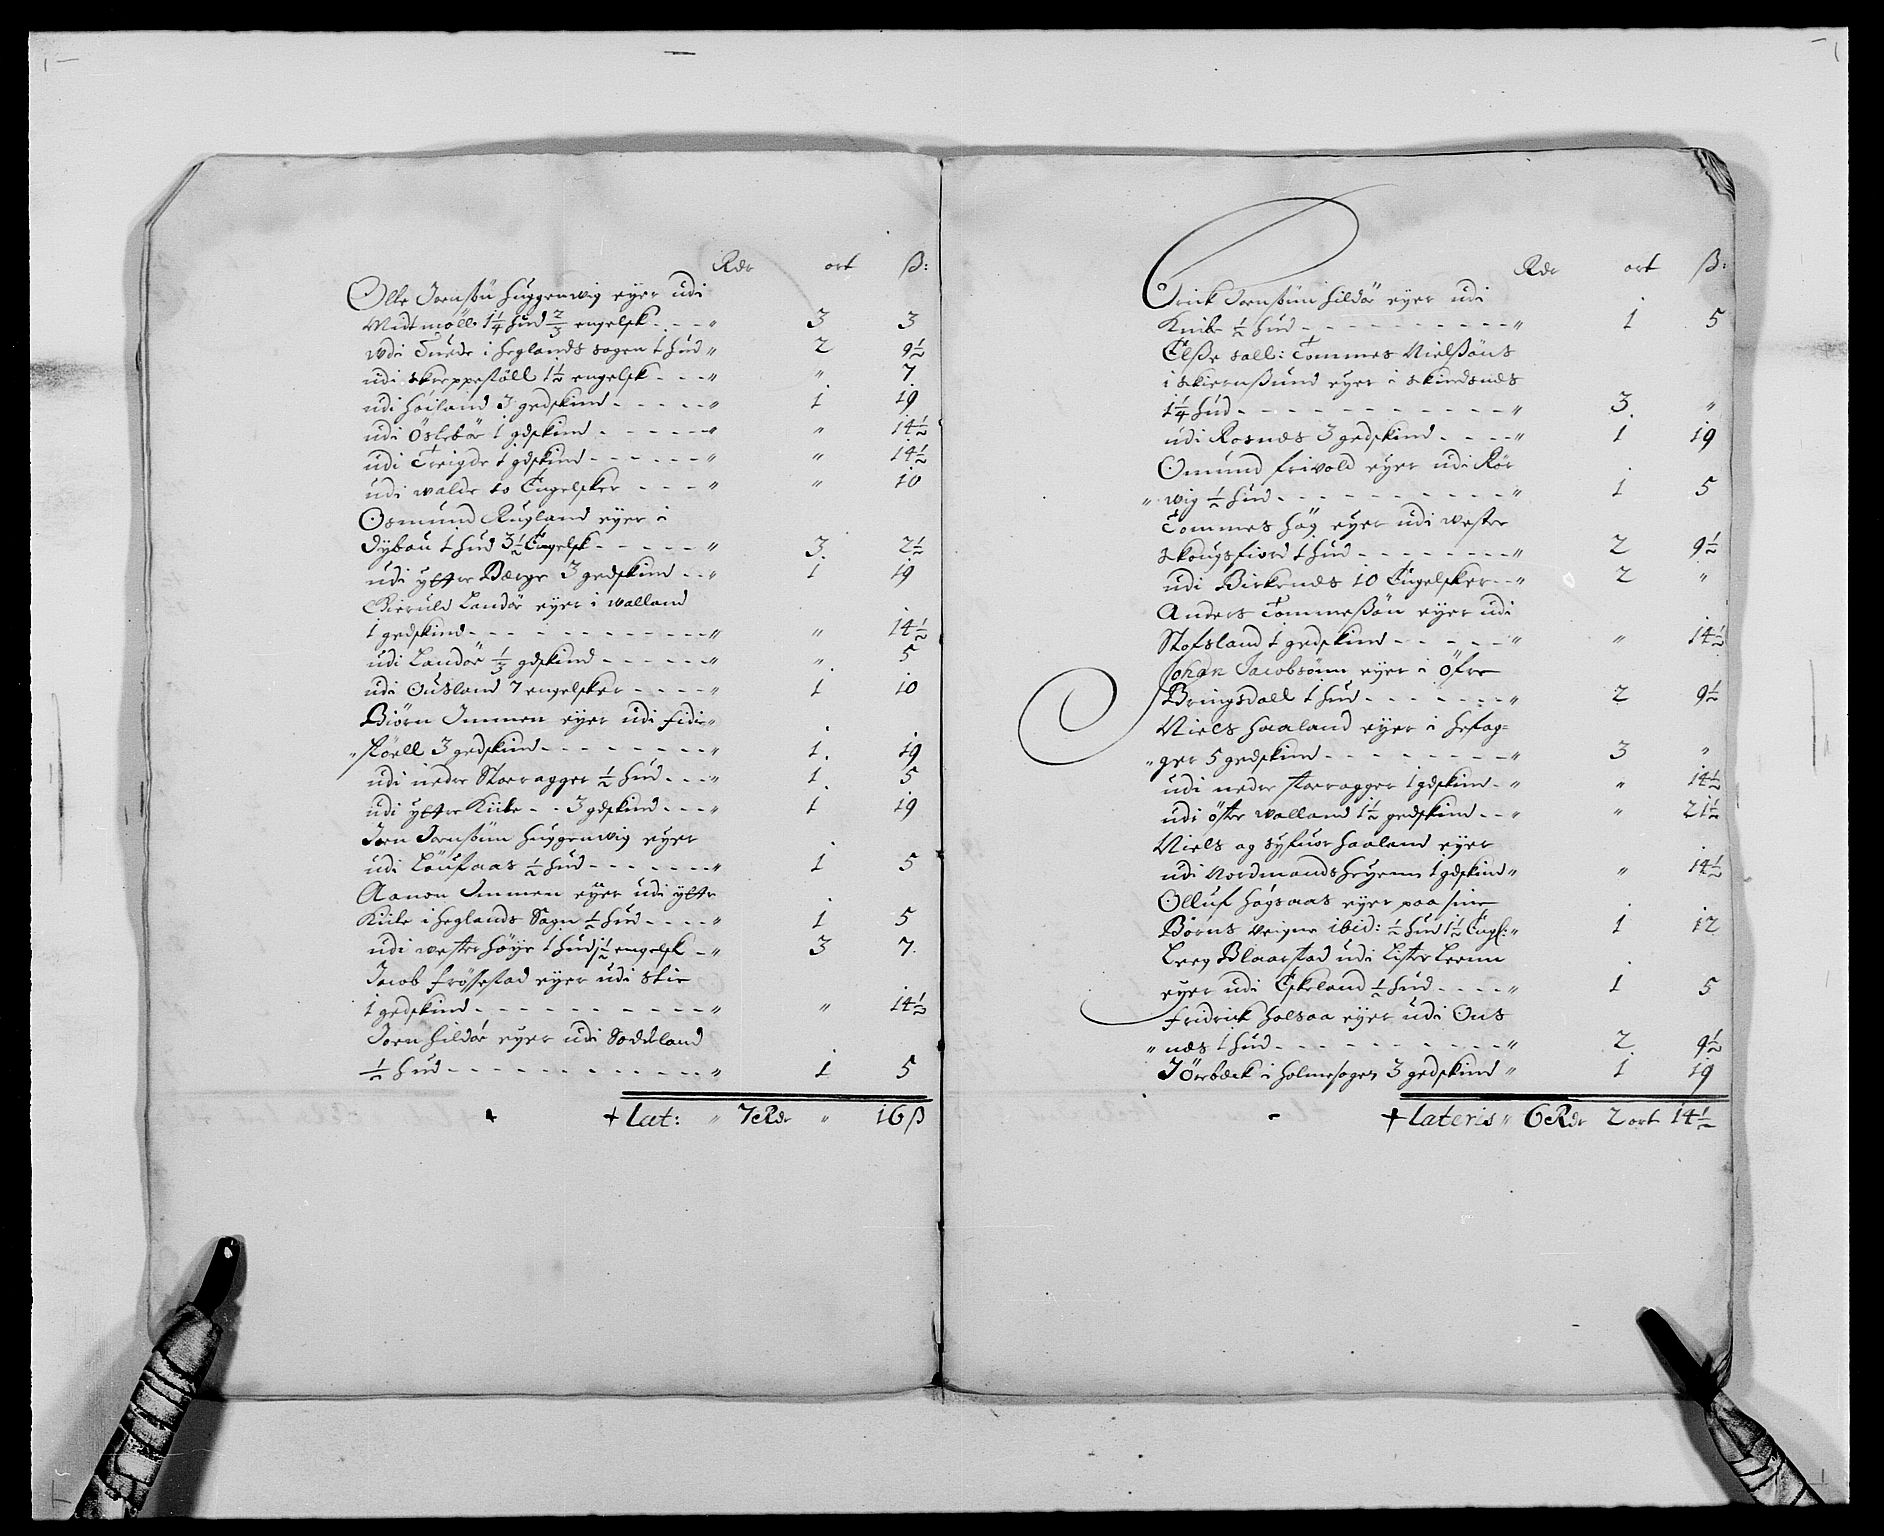 Rdr ort ß:
Olle Jernsßøn Huggenwig eyer udi
Midtmøll 1 1/4 hud 2/3 engelsk - - - " 3 3
udi Tuede i Heglands sogen 1 hud " 2 9 1/2
udi Skreppestøll 1 1/2 engelsk - - - " " 7
udi Høiland 3 gedskind - - - - - " 1 19
udi Östebör 1 gdskind - - - - - " " 14 1/2
udi Treigde 1 gdskind - - - - - - " " 14 1/2
udi Walde to Engelsker - - - - " " 10
Osmund Rugland eyer i
Dybou 1 hud 3 1/2 Engelsk - - - - - " 3 2 1/2
udi yttre Berge 3 gedskind - - " 1 19
Gieruld Landör eyer i Walland
1 gedskind - - - - - - - - - - - " " 14 1/2
udi Landör 1/3 gdskind - - - - - - " " 5
udi Ousland 7 engelsker - - - - " 1 10
Biörn Immen eyer udi Fidie"
" støell 3 gedskind - - - - - - - - " 1 19
udi nedre Storragger 1/2 hud - - - " 1 5
udi yttre Kiile - - 3 gdskind - - - " 1 19
Jern Jernsßøn Huggenwig eyer
udi Löufaas 1/2 hud - - - - - - " 1 5
Aanon Immen eyer udi yttr
Kiile i Heglands Sogn 1/2 hud - - - - " 1 5
udi wester Höye 1 hud 1 1/2 engelsk - " 3 7
Jacob Frössestad eyer udi Skie
1 gedskind - - - - - - - - - - " " 14 1/2
Jorn Hildör eyer udi Soddeland
1/2 hud - - - - - - - - - - - - " 1 5
+ lat: " 7 Rdr " 16 ß
Rdr ort ß:
Erick Jernsßøn Hildör eyer udi
Knibe 1/2 hud - - - - - - - - - - " 1 5
Elße sall: Tommes Nielßöns
i Skiernßund eyer i Skindsnes
1 1/4 hud - - - - - - - - - - - - " 3 "
udi Rosnæs 3 gedskind - - - - " 1 19
Omund Frivold eyer udi Rör
" wig 1/2 hud - - - - - - - - - - " 1 5
Tommes Høg eyer udi wester
Skougsfiord 1 hud - - - - - - - - " 2 9 1/2
udi Birkenæs 10 Engelsker - - " 2 "
Anders Tommeßön eyer udi
Stofsland 1 gedskind - - - - - " " 14 1/2
Johan Jacobsönn eyer i Öfre
Bringsdall 1 hud - - - - - - - " 2 9 1/2
Niels Haaland eyer i Hesag=
" ger 5 gedskind - - - - - - - - " 3 "
udi nedre Storragger 1 gdskind - " " 14 1/2
udi öster Walland 1 1/2 gedskind - - " " 21 1/2
Niels og Syfuer Haaland eyer
udi Nordmandsheyenn 1 gdskind " " 14 1/2
Olluf Høgsaas eyer paa sine
Börns Weigne ibid: 1/2 hud 1 1/2 Engl: " 1 12
Berg Blaarstad udi Lister Leenn
eyer udi Eskeland 1/2 hud - - - - " 1 5
Fridrick Holsaa eyer udi Ous
" næs 1 hud - - - - - - - - - - " 2 9 1/2
I Örbæck i Holmesogen 3 gedskind " 1 19
+ lateris " 6 Rdr 2 ort 14 1/2